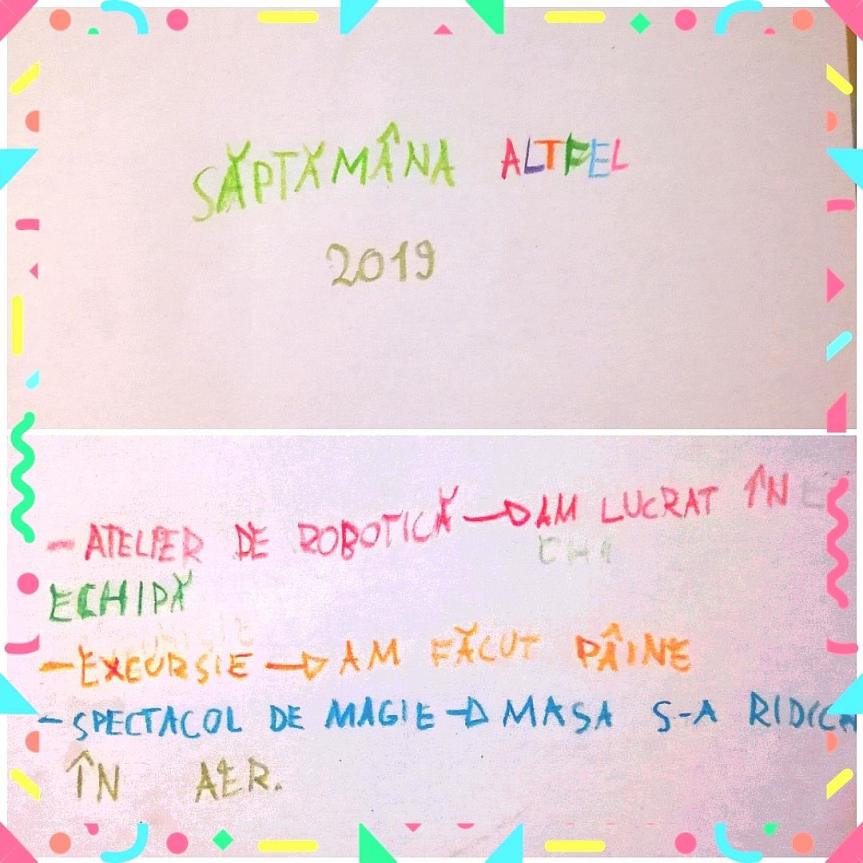 SĂPTĂMÂNA ALTFEL
2019
- ATELIER DE ROBOTICĂ → AM LUCRAT ÎN
ECHIPĂ
- EXCURSIE → AM FĂCUT PÂINE
- SPECTACOL DE MAGIE → MASA S-A
ÎN AER.